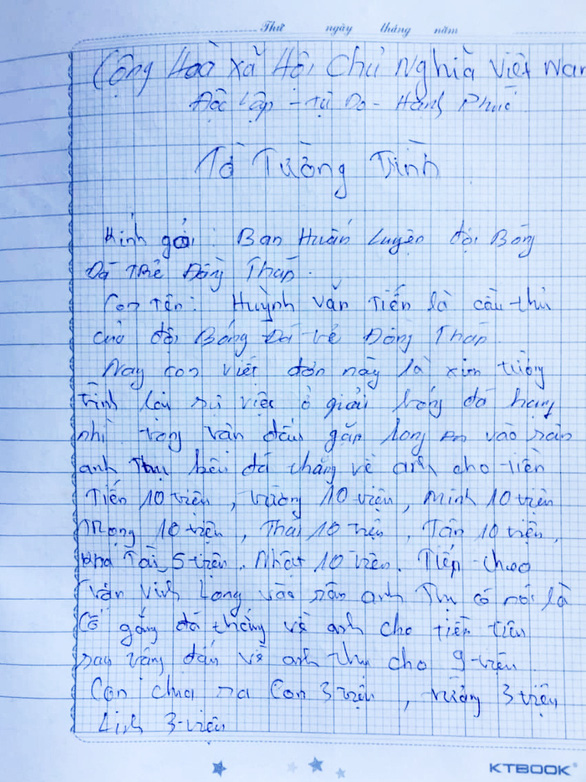 Thứ ngày tháng năm
Cộng Hoà Xã Hội Chủ Nghĩa Việt Nam
Độc Lập - Tự Do - Hạnh Phúc
Tờ Tường Trình
Kính gởi: Ban Huấn Luyện đội Bóng
Đá Trẻ Đồng Tháp.
Con Tên: Huỳnh Văn Tiến là cầu thủ
của đội Bóng Đá trẻ Đồng Tháp.
Nay con viết đơn này là xin tường
trình lại sự việc ở giải bóng đá hạng
nhì trong trận đấu gặp Long An vào sân
anh Thu kêu đá thắng về anh cho tiền
Tiến 10 triệu, Vương 10 triệu, Minh 10 triệu
Trọng 10 triệu, Thái 10 triệu, Tân 10 triệu,
Tài 5 triệu, Nhật 10 triệu. Tiếp theo
trận Vĩnh Long vào sân anh Thu có nói là
Cố gắng đá thắng về anh cho tiền tiêu
sau vòng đấu về anh Thu cho 9 triệu
Con chia ra Con 3 triệu, Vương 3 triệu
Linh 3 triệu
KTBOOK